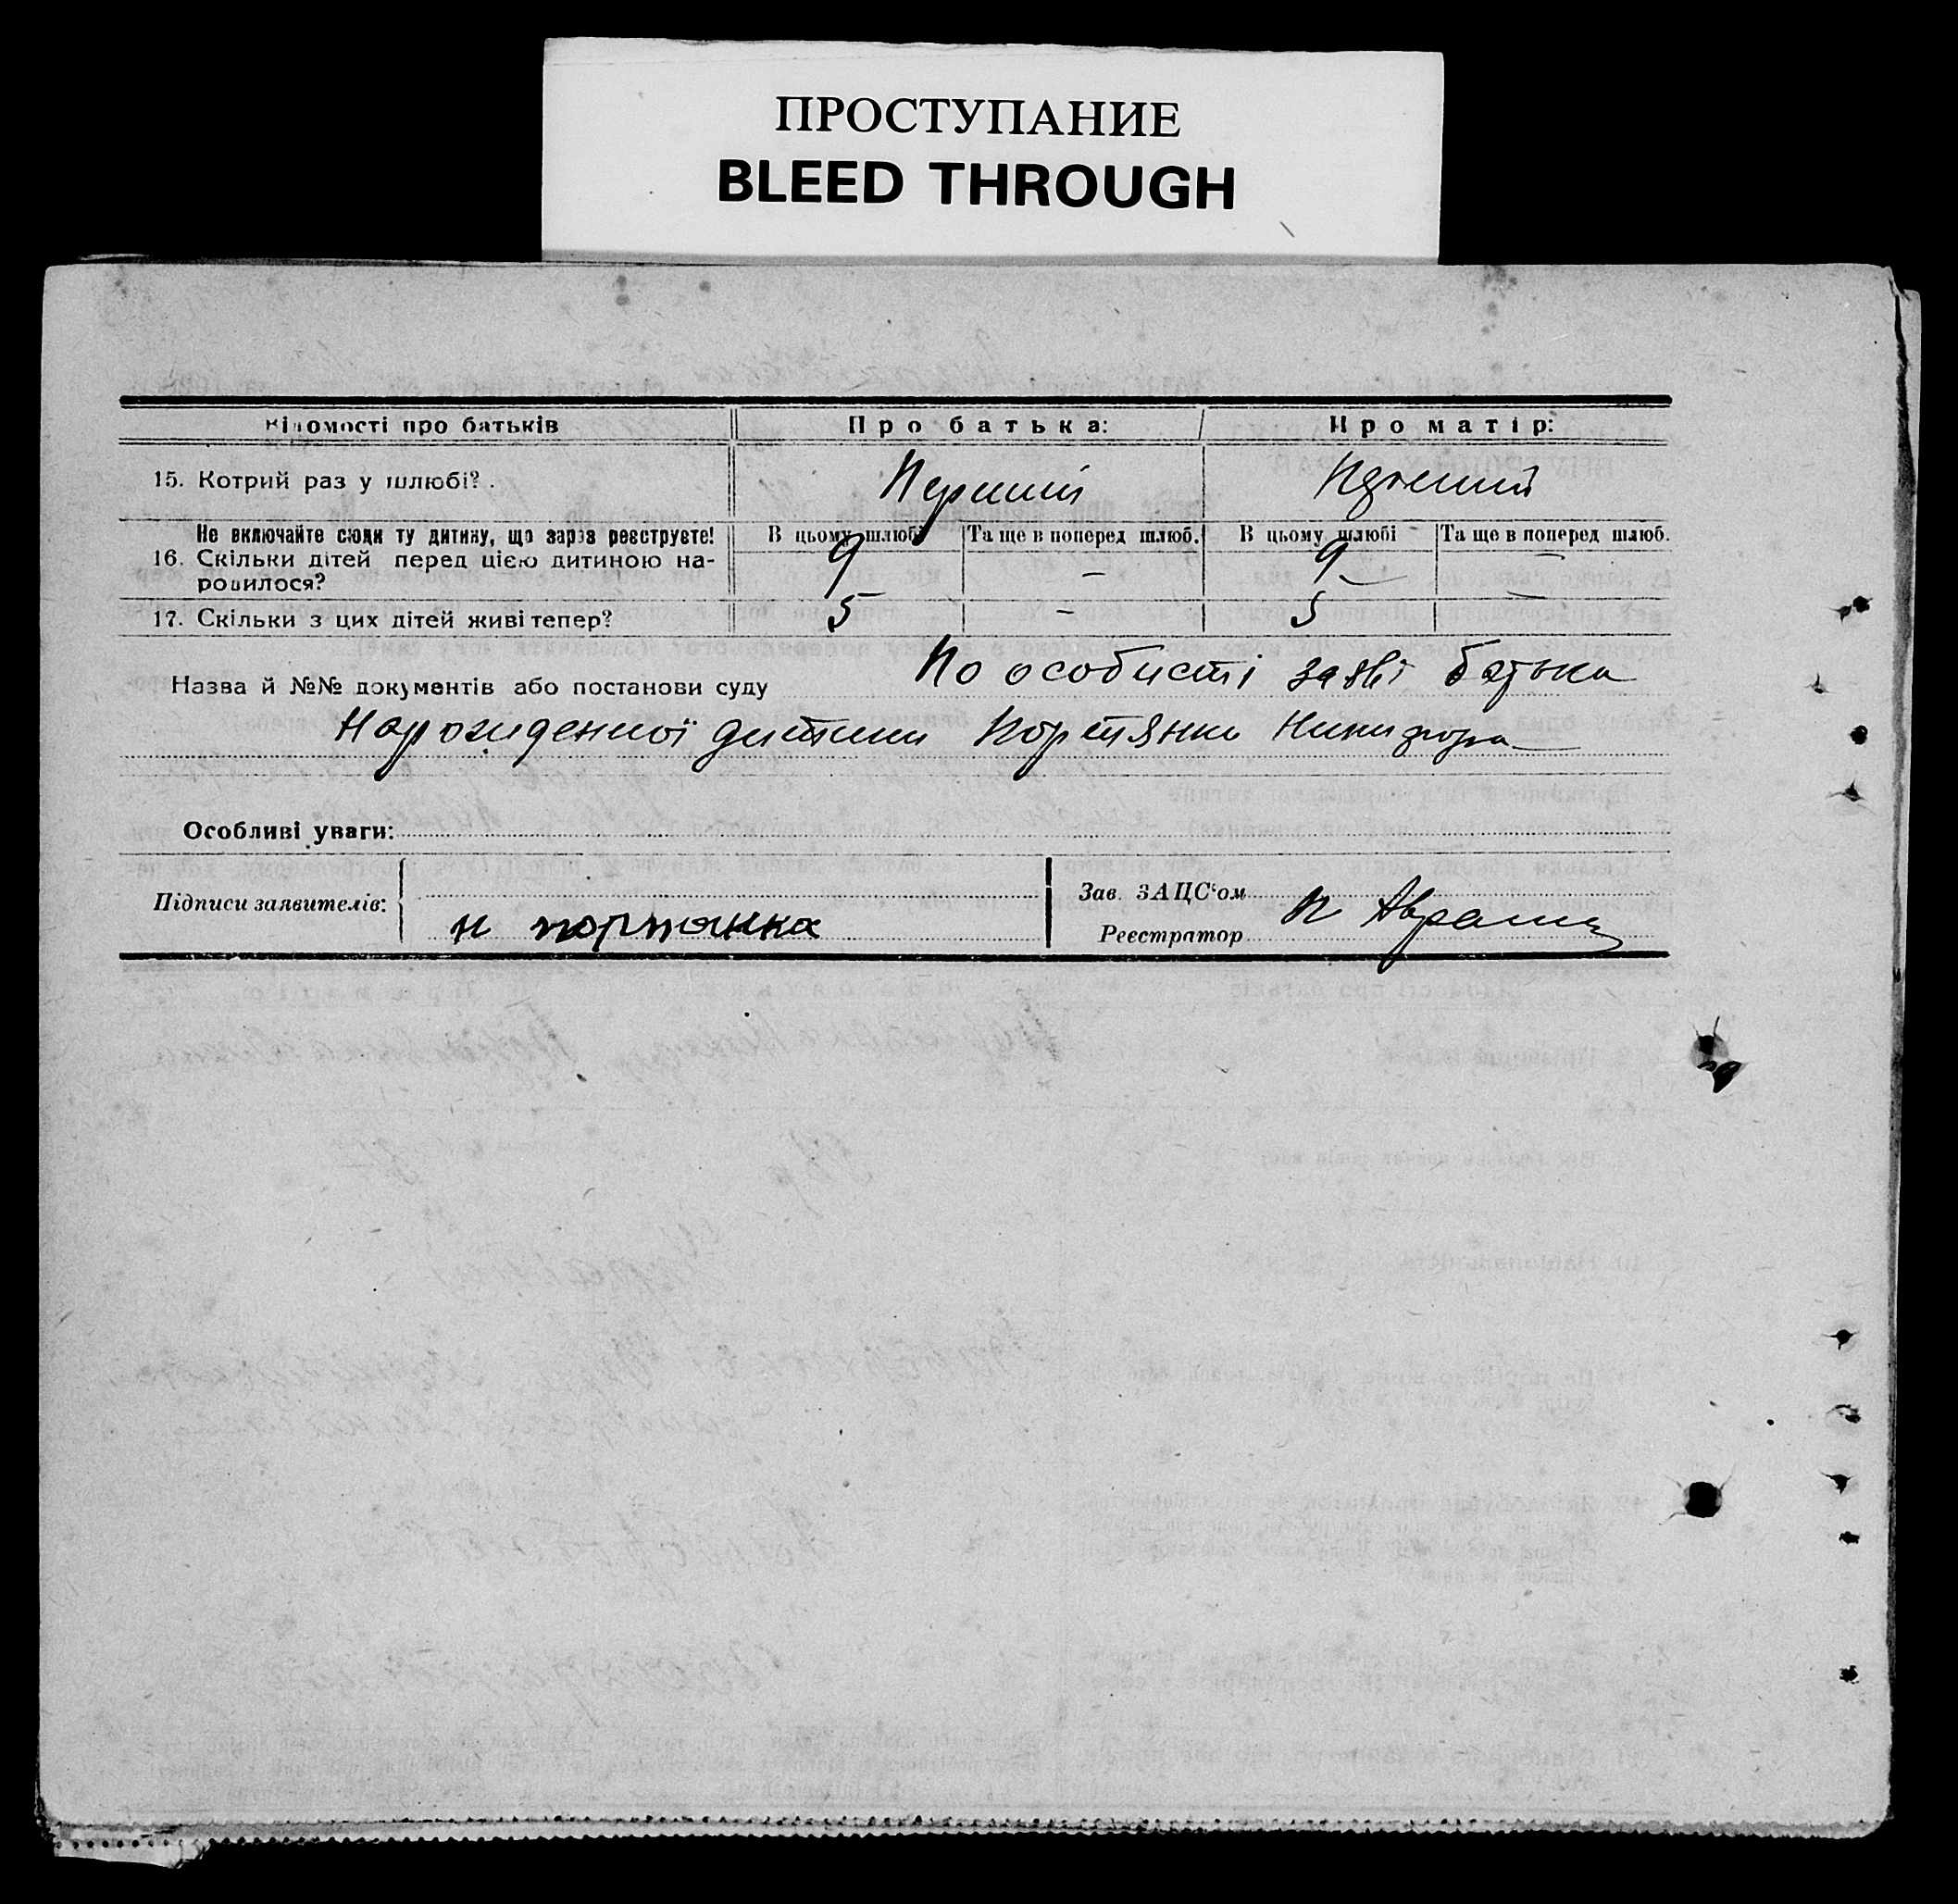 ПРОСТУПАНИЕ
BLEED THROUGH
Відомості про батьків Про батька: Про матір:
15. Котрий раз у шлюбі? Перший Перший
Не включайте сюди ту дитину, що зараз реєструєте! В цьому шлюбі Та ще в поперед шлюб. В цьому шлюбі Та ще в поперед шлюб.
16. Скільки дітей перед цією дитиною на- 9 — 9 —
родилося?
17. Скільки з цих дітей живі тепер? 5 – 5 —
Назва й №№ документів або постанови суду По особисті заяві батька
Нарожденної дитини Портянки Никифора
Особливі уваги:
Підписи заявителів: Зав. ЗАЦС'ом
н портянка Реєстратор